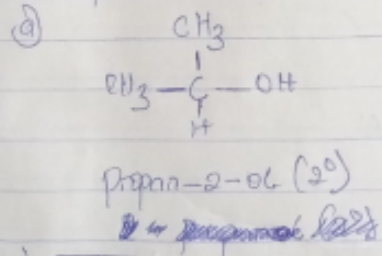 a)
CH3
CH3—C—OH
H
propan-2-OL (2°)